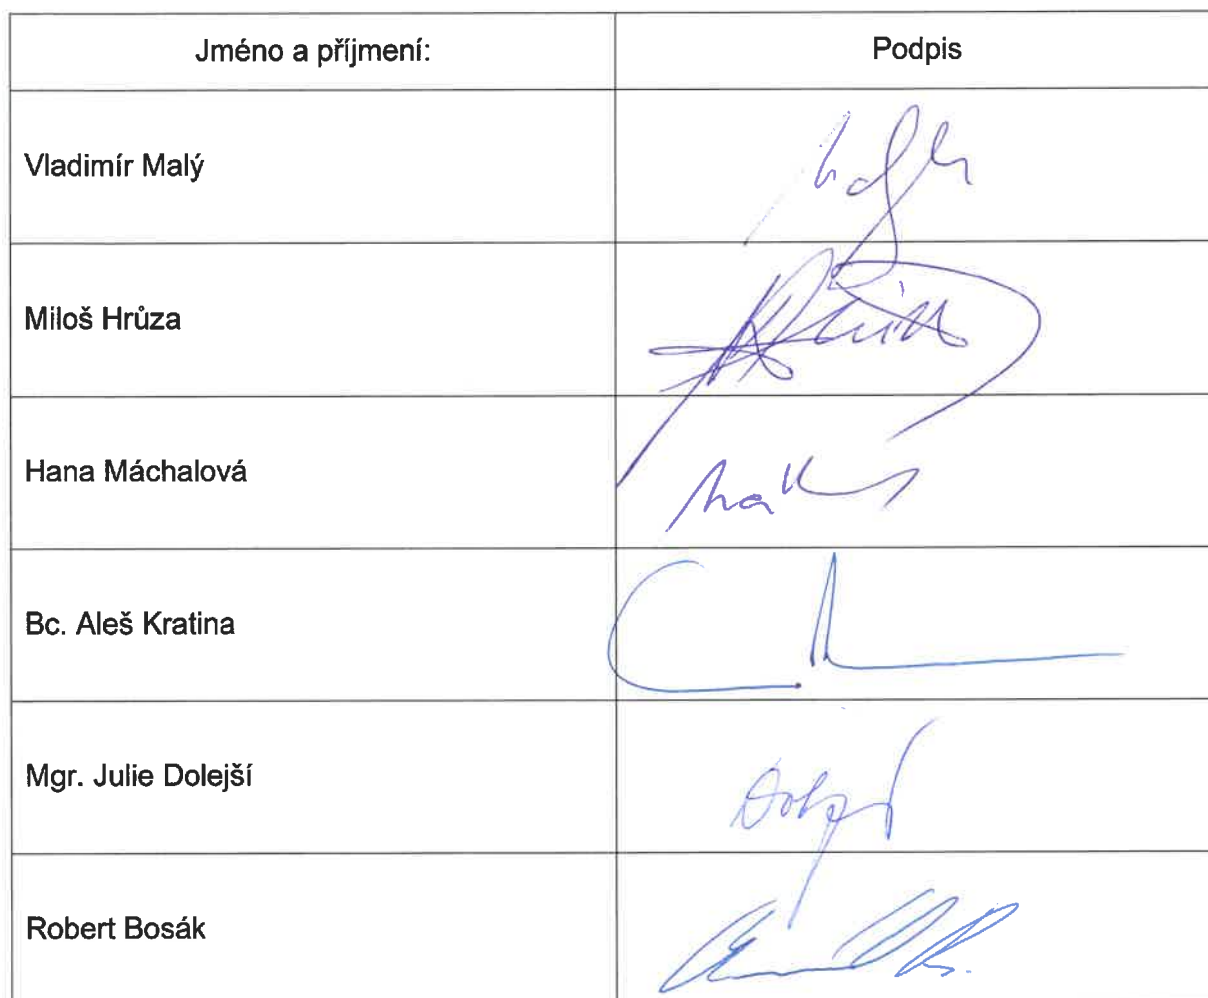 Jméno a příjmení: Podpis
Vladimír Malý
Miloš Hrůza
Hana Máchalová
Bc. Aleš Kratina
Mgr. Julie Dolejší
Robert Bosák